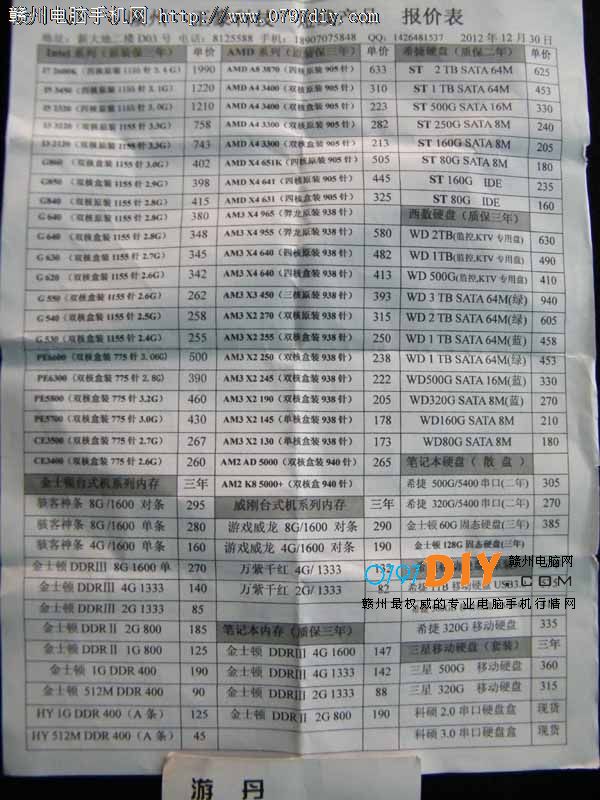 赣州电脑手机网 http://www.0797diy.com 报价表
地址：新大地二楼 D03 号 电话：8125588 手机：18907075848 QQ：1426481537 2012 年 12 月 30 日
Intel 系列（原装保三年） 单价 AMD 系列 单价 希捷硬盘（质保二年） 单价
1990 AMD A8 3870（四核原装 905 针） 633 ST 2 TB SATA 64M 625
1220 AMD A4 3400（双核原装 905 针） 310 ST 1 TB SATA 64M 453
1210 AMD A4 3400（双核盒装 905 针） 223 ST 500G SATA 16M 330
758 AMD A4 3300（双核原装 905 针） 282 ST 250G SATA 8M 240
743 AMD A4 3300（双核盒装 905 针） 213 ST 160G SATA 8M 205
G860（双核盒装 1155 针 3.0G） 402 AMD X4 651K（四核原装 905 针） 505 ST 80G SATA 8M 180
G850（双核盒装 1155 针 2.9G） 398 AMD X4 641（四核原装 905 针） 445 ST 160G IDE 235
G840（双核盒装 1155 针 2.8G） 415 AMD X4 631（四核盒装 905 针） 325 ST 80G IDE 160
G 640（双核原装 1155 针 2.8G） 380 AM3 X4 965（羿龙原装 938 针） 西数硬盘（质保三年）
G 640（双核盒装 1155 针 2.8G） 348 AM3 X4 955（羿龙原装 938 针） 580 WD 2TB(监控,KTV 专用盘) 630
G 630（双核盒装 1155 针 2.7G） 345 AM3 X4 640（四核原装 938 针） 482 WD 1TB(监控,KTV 专用盘) 490
G 620（双核盒装 1155 针 2.6G） 342 AM3 X4 640（四核盒装 938 针） 413 WD 500G(监控,KTV 专用盘) 410
G 550（双核盒装 1155 针 2.6G） 262 AM3 X3 450（三核原装 938 针） 393 WD 3 TB SATA 64M(绿) 940
G 540（双核盒装 1155 针 2.5G） 258 AM3 X2 270（双核原装 938 针） 315 WD 2 TB SATA 64M(绿) 605
G 530（双核盒装 1155 针 2.4G） 255 AM3 X2 255（双核盒装 938 针） 250 WD 1 TB SATA 64M(蓝) 458
PE6600（双核盒装 775 针 3.06G） 500 AM3 X2 250（双核盒装 938 针） 238 WD 1 TB SATA 64M(绿) 453
PE6300（双核盒装 775 针 2.8G） 390 AM3 X2 245（双核盒装 938 针） 222 WD500G SATA 16M(蓝) 330
PE5800（双核盒装 775 针 3.2G） 460 AM3 X2 190（双核盒装 938 针） 205 WD320G SATA 8M(蓝) 270
PE5700（双核盒装 775 针 3.0G） 430 AM3 X2 145（单核盒装 938 针） 178 WD160G SATA 8M 210
CE3500（双核盒装 775 针 2.7G） 267 AM3 X2 130（单核盒装 938 针） 173 WD80G SATA 8M 180
CE3400（双核盒装 775 针 2.6G） 260 AM2 AD 5000（双核盒装 940 针） 265 笔记本硬盘（散 盘）
金士顿台式机系列内存 三年 AM2 K8 5000+（双核盒 940 针） 希捷 500G/5400 串口(二年) 305
骇客神条 8G /1600 对条 295 威刚台式机系列内存 三年 希捷 320G/5400 串口(二年) 270
骇客神条 8G /1600 单条 280 游戏威龙 8G /1600 单条 290 金士顿 60G 固态硬盘(三年) 385
骇客神条 4G /1600 单条 160 游戏威龙 4G /1600 对条 190 金士顿 128G 固态硬盘(三年)
金士顿 DDRⅢ 8G 1600 单 270 万紫千红 4G/ 1333 132
金士顿 DDRⅢ 4G 1333 140 万紫千红 2G/ 1333 82
0797DIY 赣州电脑网 .COM
赣州最权威的专业电脑手机行情网
金士顿 DDRⅢ 2G 1333 85
金士顿 DDRⅡ 2G 800 185 笔记本内存（质保三年） 希捷 320G 移动硬盘 335
金士顿 1G DDR 400 190 金士顿 DDRⅢ 4G 1600 147 三星移动硬盘（套装） 三年
金士顿 512M DDR 400 90 金士顿 DDRⅢ 4G 1333 142 三星 500G 移动硬盘 360
HY 1G DDR 400（A 条） 125 金士顿 DDRⅢ 2G 1333 88 三星 320G 移动硬盘 315
HY 512M DDR 400（A 条） 45 金士顿 DDRⅡ 2G 800 190 科硕 2.0 串口硬盘盒 现货
科硕 3.0 串口硬盘盒 现货
游 丹